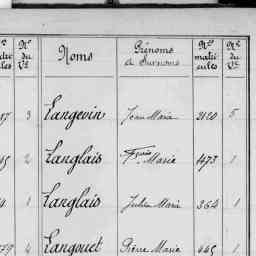 Nº du Vº Noms Prénoms & Surnoms Nºs matricules Nº du Vº
3 Langevin Jean Marie 2120 5
2 Langlais Fçois Marie 1173 1
1 Langlais Julien Marie 364 1
4 Langouet Pierre Marie 445 1